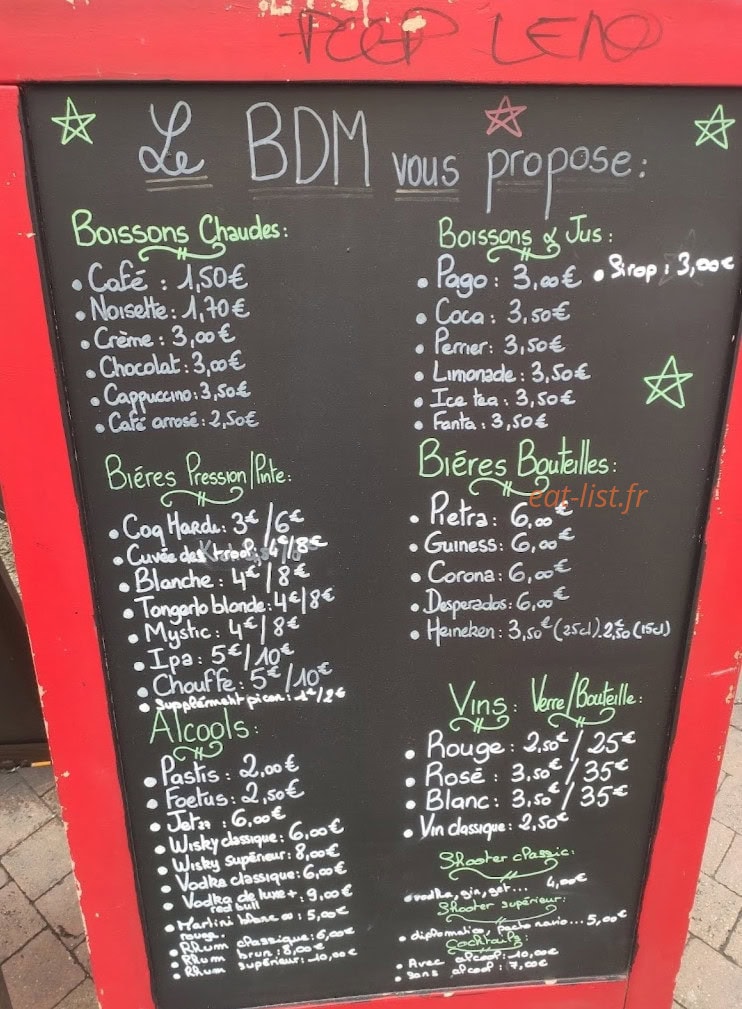 Le BDM vous propose:
Boissons Chaudes:
• Café : 1,50€
• Noisette: 1,70€
• Crème: 3,00€
• Chocolat: 3,00€
• Cappuccino: 3,50€
• Café arrosé: 2,50€
Biéres Pression/Pinte:
• Coq Hardi: 3€/6€
• Cuvée des trolls: 4€/8€
• Blanche: 4€/8€
• Tongerlo blonde: 4€/8€
• Mystic: 4€/8€
• Ipa: 5€/10€
• Chouffe: 5€/10€
• Supplément picon: 1€/2€
Alcools:
• Pastis: 2,00€
• Foetus: 2,50€
• Jet27: 6,00€
• Wisky classique: 6,00€
• Wisky supérieur: 8,00€
• Vodka classique: 6,00€
• Vodka de luxe +: 9,00€
red bull
• Martini blanc ou: 5,00€
rouge.
• Rhum classique: 6,00€
• Rhum brun: 8,00€
• Rhum supérieur: 10,00€
Boissons & Jus:
• Pago: 3,00€ • Sirop: 3,00€
• Coca: 3,50€
• Perrier: 3,50€
• Limonade: 3,50€
• Ice tea: 3,50€
• Fanta: 3,50€
Biéres Bouteilles:
eat-list.fr
• Pietra: 6,00€
• Guiness: 6,00€
• Corona: 6,00€
• Desperados: 6,00€
• Heineken: 3,50€ (25cl). 2,50€ (15cl)
Vins: Verre/Bouteille:
• Rouge: 2,50€/25€
• Rosé: 3,50€/35€
• Blanc: 3,50€/35€
• Vin classique: 2,50€
Shooter classic:
• vodka, gin, get... 4,00€
Shooter supérieur:
• diplomatico, pacto navio... 5,00€
Cocktails:
• Avec alcool: 10,00€
• Sans alcool: 7,00€